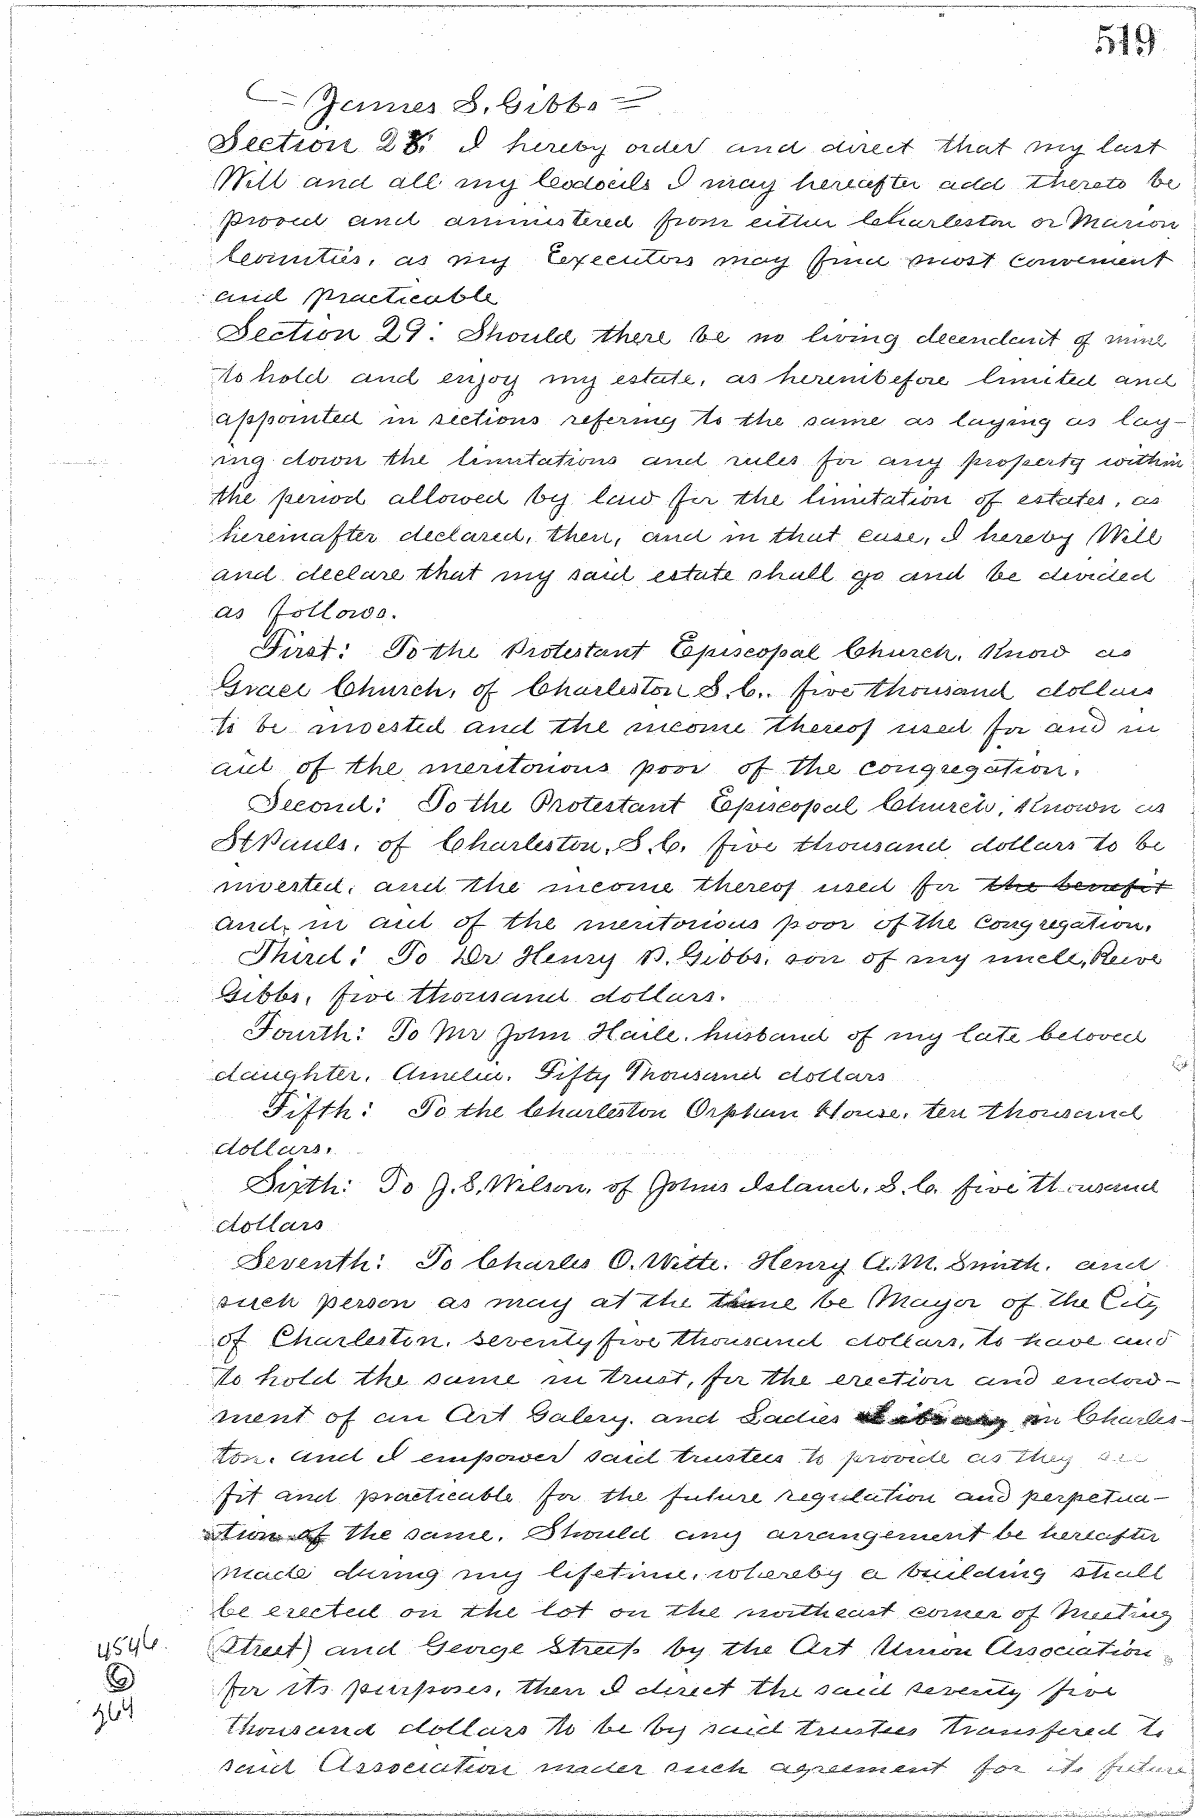 519
James S. Gibbs
Section 28: I hereby order and direct that my last
Will and all my Codocils I may hereafter add thereto be
proved and aministered from either Charleston or Marion
Counties, as my Executors may find most convenient
and practicable
Section 29: Should there be no living decendant of mine
to hold and enjoy my estate, as hereinbefore limited and
appointed in sections refering to the same as laying as lay-
ing down the limitations and rules for any property within
the period allowed by law for the limitation of estates, as
hereinafter declared, then, and in that case, I hereby Will
and declare that my said estate shall go and be divided
as follows.
First: To the Protestant Episcopal Church, Know as
Grace Church, of Charleston S.C., five thousand dollars
to be invested and the income thereof used for and in
aid of the meritorious poor of the congregation.
Second: To the Protestant Episcopal Church, Known as
St Pauls, of Charleston, S.C. five thousand dollars to be
invested, and the income thereof used for the benefit
and, in aid of the meritorious poor of the congregation.
Third: To Dr Henry P. Gibbs, son of my uncle, Reeve
Gibbs, five thousand dollars.
Fourth: To Mr John Haile, husband of my late beloved
daughter, Amelia, Fifty Thousand dollars
Fifth: To the Charleston Orphan House, ten thousand
dollars.
Sixth: To J. S. Wilson, of Johns Island, S.C. five thousand
dollars
Seventh: To Charles O. Witte, Henry A.M. Smith, and
such person as may at the time be Mayor of the City
of Charleston, seventy five thousand dollars, to have and
to hold the same in trust, for the erection and endow-
ment of an Art Galery, and Ladies Library in Charles-
ton, and I empower said trustees to provide as they see
fit and practicable for the future regulation and perpetua-
tion of the same. Should any arrangement be hereafter
made during my lifetime, whereby a building shall
be erected on the lot on the northeast corner of Meeting
(Street) and George Streets by the Art Union Association
for its purposes, then I direct the said seventy five
thousand dollars to be by said trustees transfered to
said Association under such agreement for its future
4546
6
364